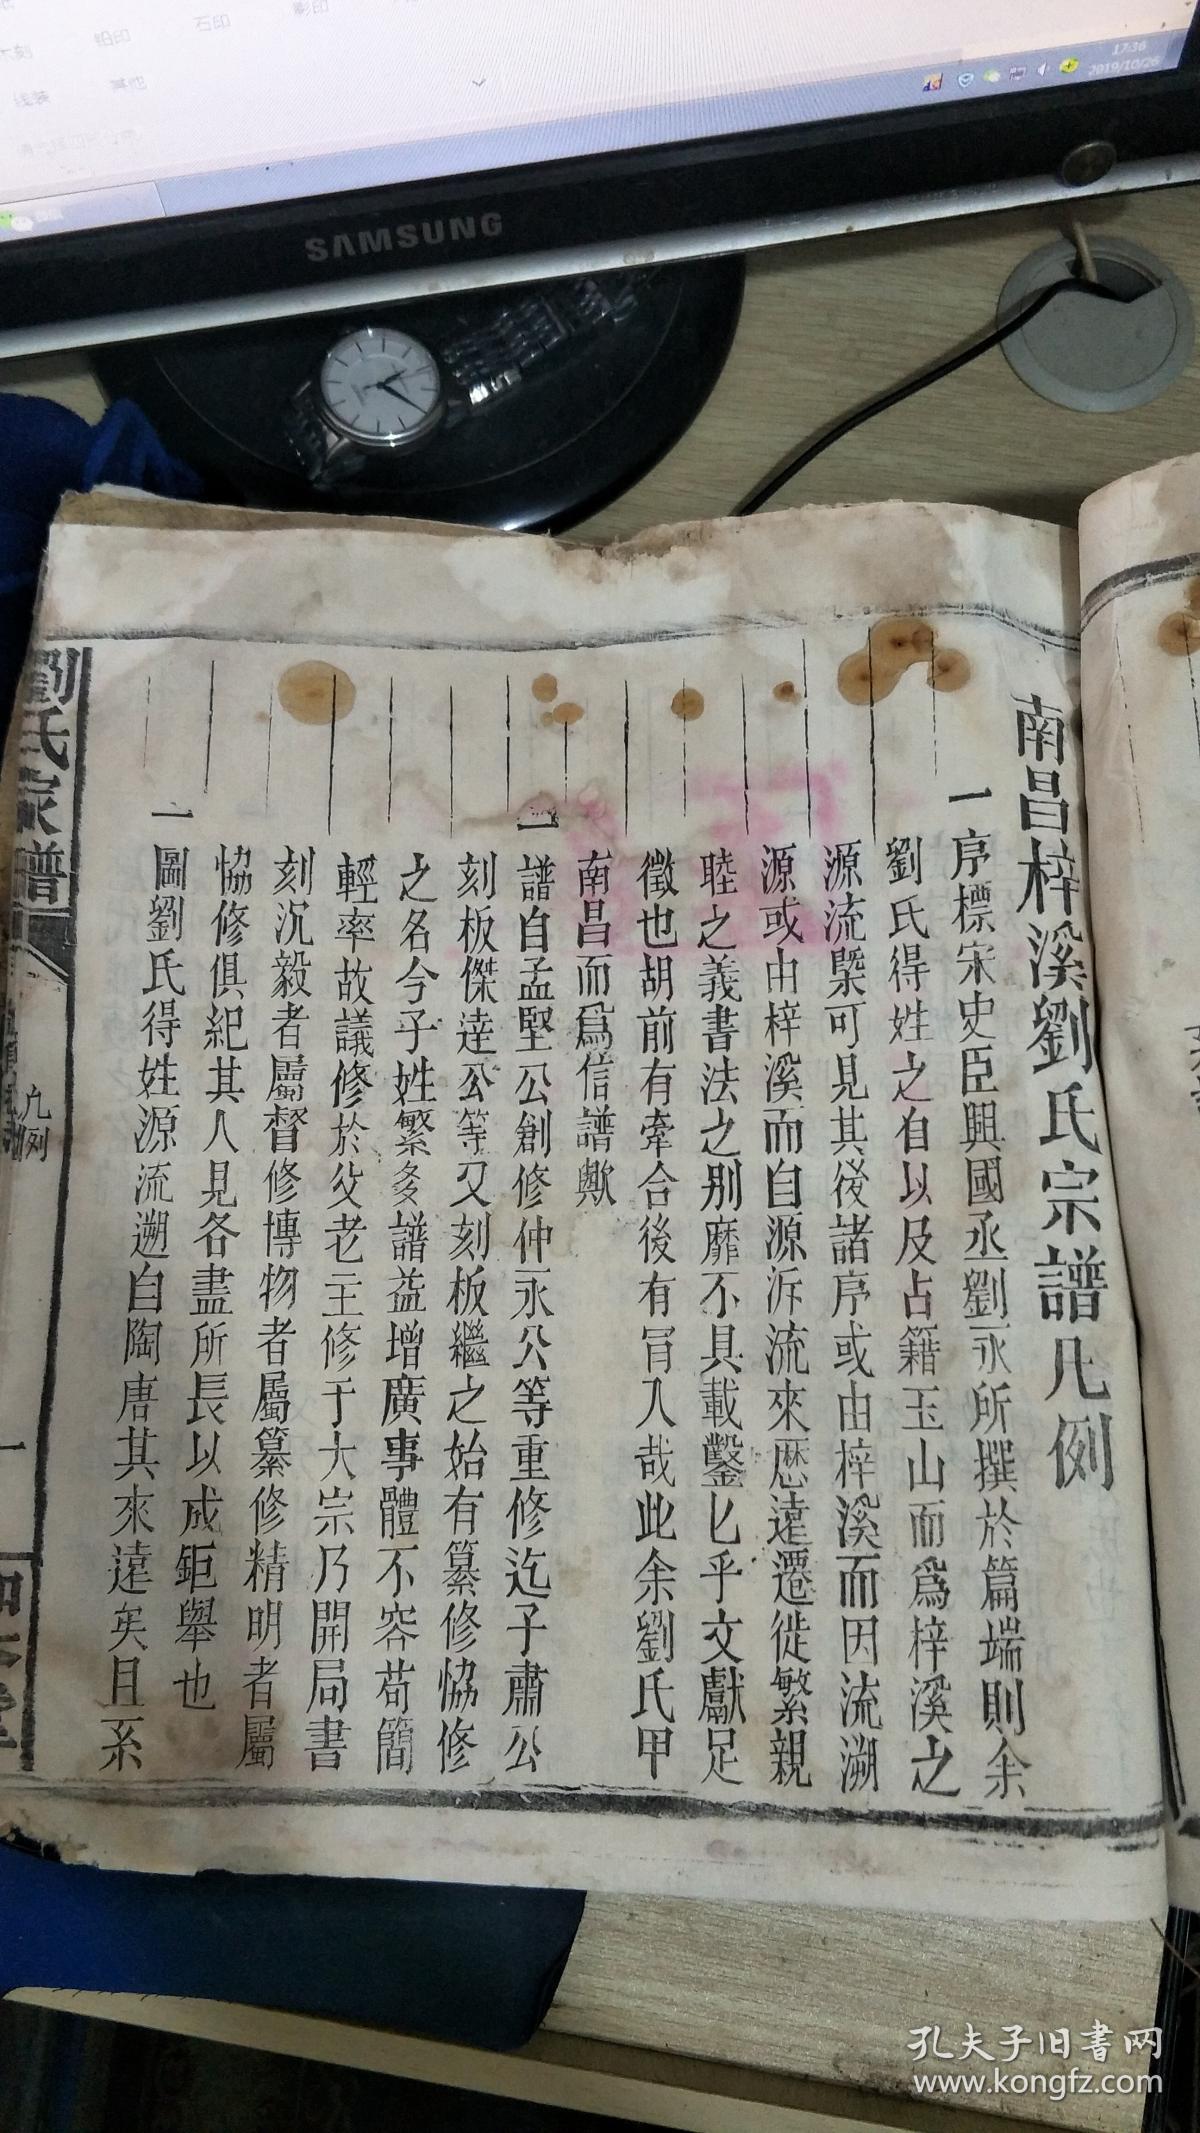 南昌梓溪劉氏宗譜凡例
一序標宋史臣興國丞劉永所撰於篇端則余
劉氏得姓之自以及占籍玉山而爲梓溪之
源流槩可見其後諸序或由梓溪而因流溯
源或由梓溪而自源泝流來歷遠遷徙繁親
睦之義書法之别靡不具載鑿乚乎文獻足
徵也胡前有牽合後有冐入哉此余劉氏甲
南昌而爲信譜歟
一譜自孟堅公創修仲永公等重修迄子肅公
刻板傑逹公等又刻板繼之始有纂修恊修
之名今子姓繁多譜益增廣事體不容苟簡
輕率故議修於父老主修于大宗乃開局書
刻沉毅者屬督修博物者屬纂修精明者屬
恊修俱紀其人見各盡所長以成鉅舉也
一圖劉氏得姓源流遡自陶唐其來遠矣且系
劉氏家譜
凡例
一
SAMSUNG
17:36
2019/10/26
石印
影印
木刻
鉛印
线装
其他
孔夫子旧书网
www.kongfz.com